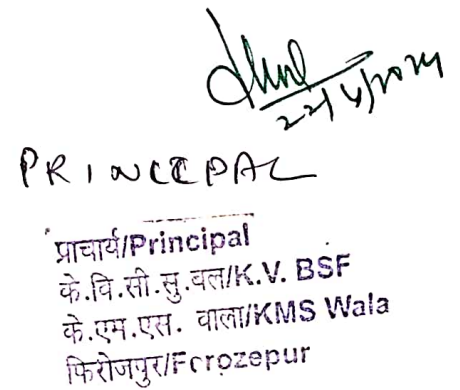 22/4/2024
PRINCEPAL
प्राचार्य/Principal
के.वि.सी.सु.वल/K.V. BSF
के.एम.एस. वाला/KMS Wala
फिरोजपुर/Ferozepur